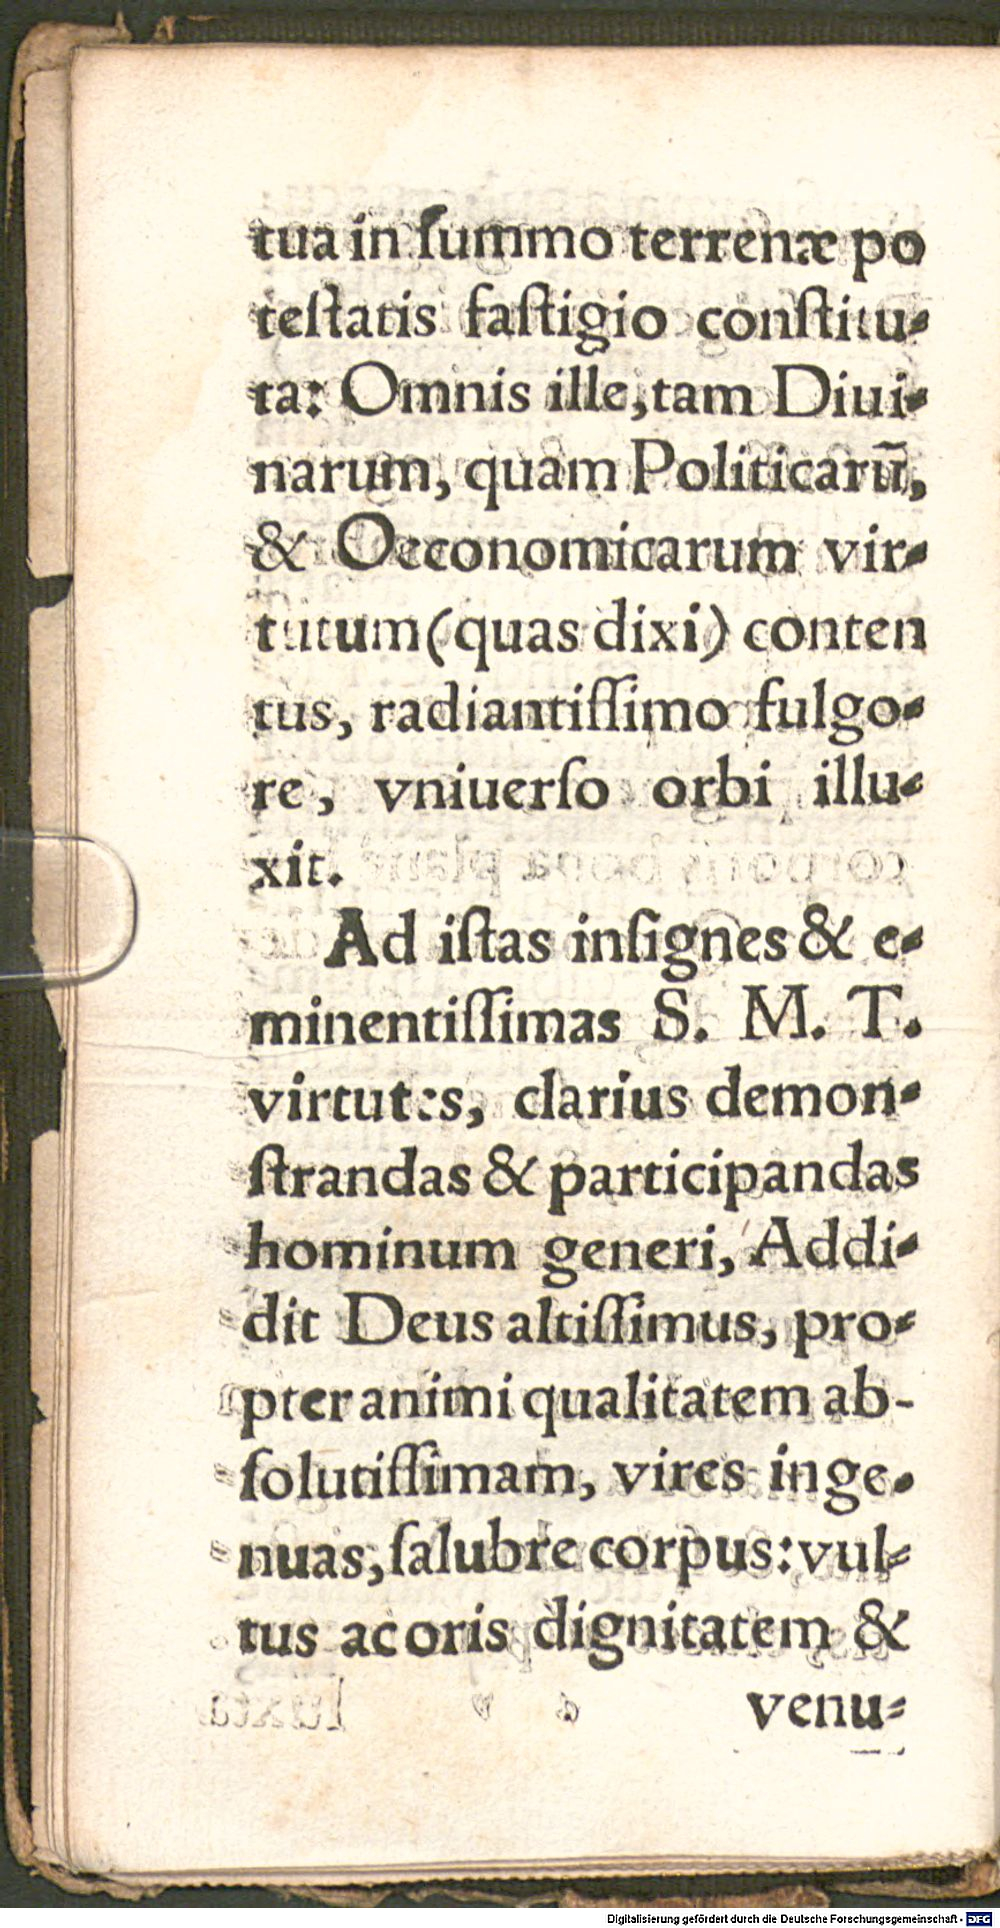 tua in ſummo terrenæ po
teſtatis faſtigio conſtitu-
ta: Omnis ille, tam Diui-
narum, quam Politicarū,
& Oeconomicarum vir-
tutum (quas dixi) conten
tus, radiantiſſimo fulgo-
re, vniuerſo orbi illu-
xit.
Ad iſtas inſignes & e-
minentiſſimas S. M. T.
virtutes, clarius demon-
ſtrandas & participandas
hominum generi, Addi-
dit Deus altiſſimus, pro-
pter animi qualitatem ab-
ſolutiſſimam, vires inge-
nuas, ſalubre corpus: vul-
tus ac oris dignitatem &
venu-
Digitalisierung gefördert durch die Deutsche Forschungsgemeinschaft - DFG